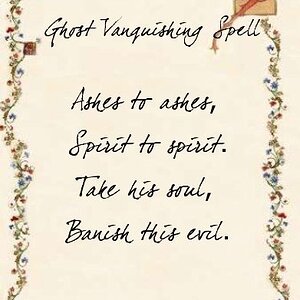 Ghost Vanquishing Spell
Ashes to ashes,
Spirit to spirit.
Take his soul,
Banish this evil.